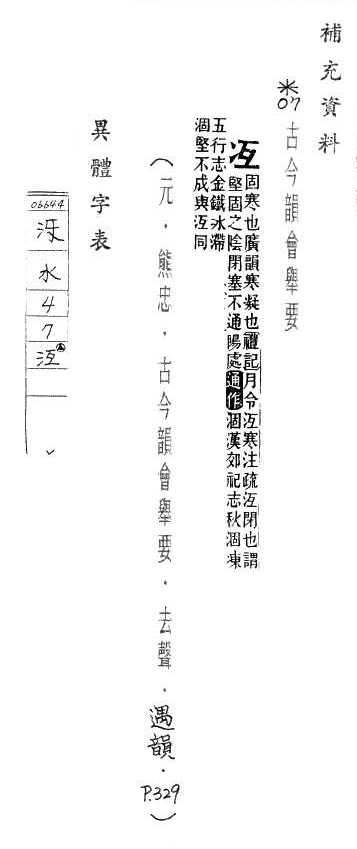 補充資料
*07 古今韻會舉要
冱 固寒也廣韻寒凝也禮記月令冱寒注疏冱閉也謂
堅固之陰閉塞不通陽處通作涸漢郊祀志秋涸凍
五行志金鐵冰滯
涸堅不成與冱同
(元．熊忠．古今韻會舉要．去聲．遇韻．P.329)
異體字表
06644
水
4
7
冱